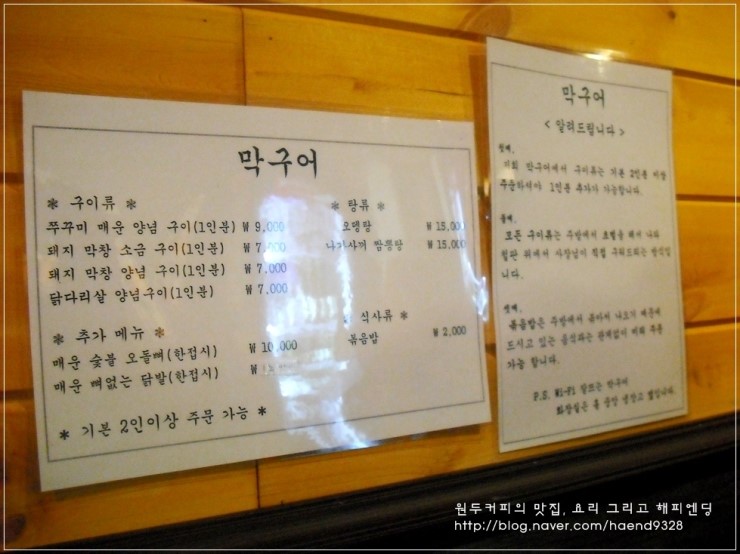 막구어
* 구이류 *
쭈꾸미 매운 양념 구이(1인분) ₩ 9,000
돼지 막창 소금 구이(1인분) ₩ 7,000
돼지 막창 양념 구이(1인분) ₩ 7,000
닭다리살 양념구이(1인분) ₩ 7,000
* 추가 메뉴 *
매운 숯불 오돌뼈(한접시) ₩ 10,000
매운 뼈없는 닭발(한접시) ₩
* 기본 2인이상 주문 가능 *
* 탕류 *
오뎅탕 ₩ 15,000
나가사끼 짬뽕탕 ₩ 15,000
식사류 *
볶음밥 ₩ 2,000
막구어
< 알려드립니다 >
첫째,
저희 막구어에서 구이류는 기본 2인분 이상
주문하셔야 1인분 추가가 가능합니다.
둘째,
모든 구이류는 주방에서 초벌을 해서 나와
철판 위에서 사장님이 직접 구워드리는 방식입
니다.
셋째,
볶음밥은 주방에서 볶아서 나오기 때문에
드시고 있는 음식과는 관계없이 미리 주문
가능 합니다.
P.S. Wi-Fi 암호는 막구어
화장실은 홀 중앙 냉장고 옆입니다.
원두커피의 맛집, 요리 그리고 해피엔딩
http://blog.naver.com/haend9328